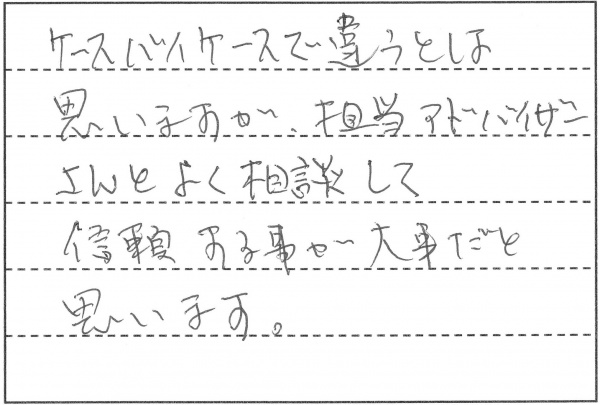 ケースバイケースで違うとは
思いますが、担当アドバイザー
さんとよく相談して
信頼する事が大事だと
思います。